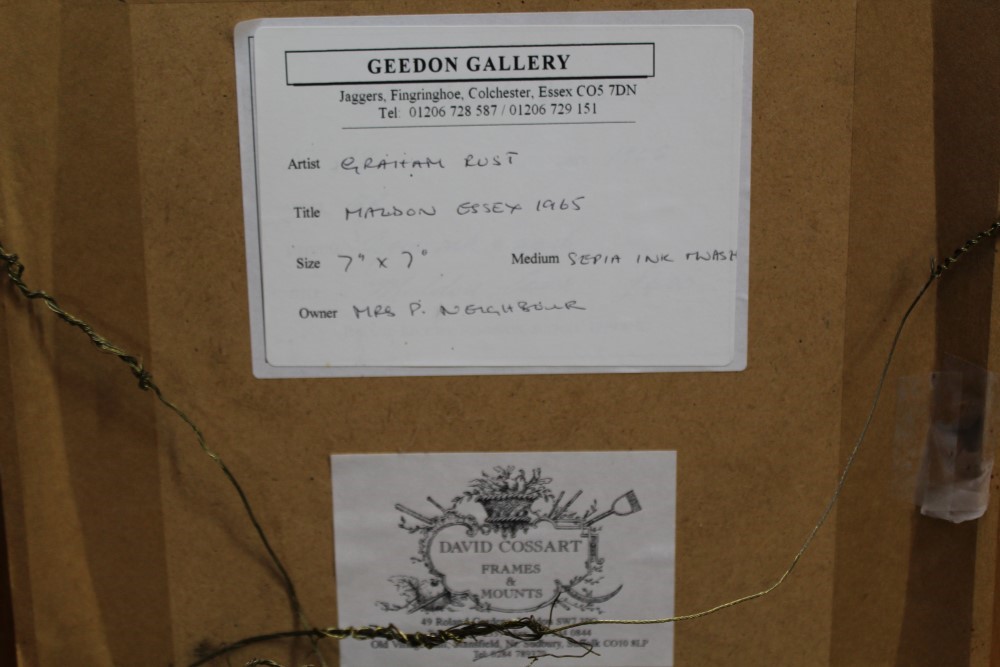 GEEDON GALLERY
Jaggers, Fingringhoe, Colchester, Essex CO5 7DN
Tel: 01206 728 587 / 01206 729 151
Artist GRAHAM RUST
Title MALDON ESSEX 1965
Size 7" x 7" Medium SEPIA INK + WASH
Owner MRS P. NEIGHBOUR
DAVID COSSART
FRAMES
&
MOUNTS
49 Roland SW7
0844
Old Stansfield, Nr. Sudbury, Suffolk CO10 8LP
Tel: 0284